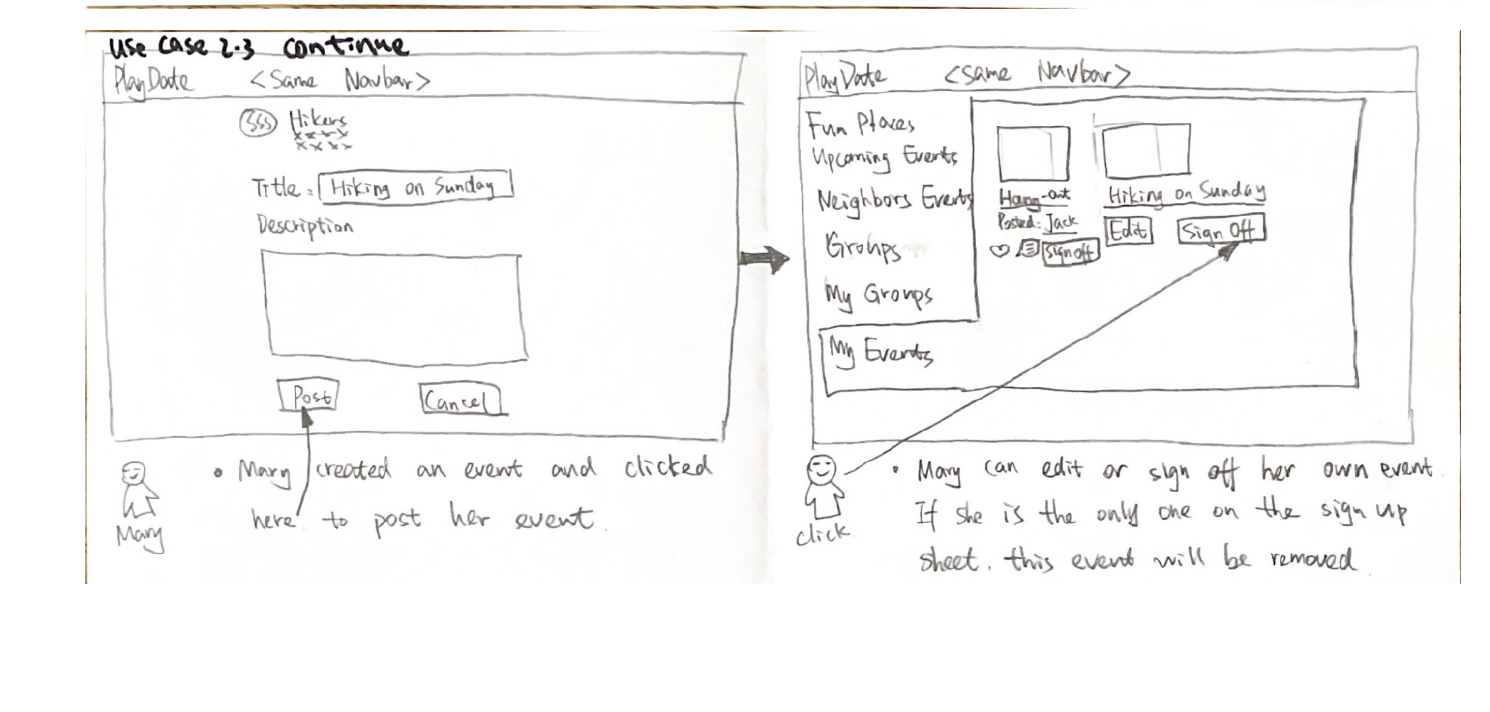 Use Case 2.3 continue
PlayDate <Same Navbar>
Hikers
Title: Hiking on Sunday
Description
Post Cancel
Mary
• Mary created an event and clicked
here to post her event.
PlayDate <Same Navbar>
Fun Places
Upcoming Events
Neighbors Events
Groups
My Groups
My Events
Hang-out
Posted: Jack
Sign off
Hiking on Sunday
Edit Sign Off
click
• Mary can edit or sign off her own event.
If she is the only one on the sign up
sheet. this event will be removed.